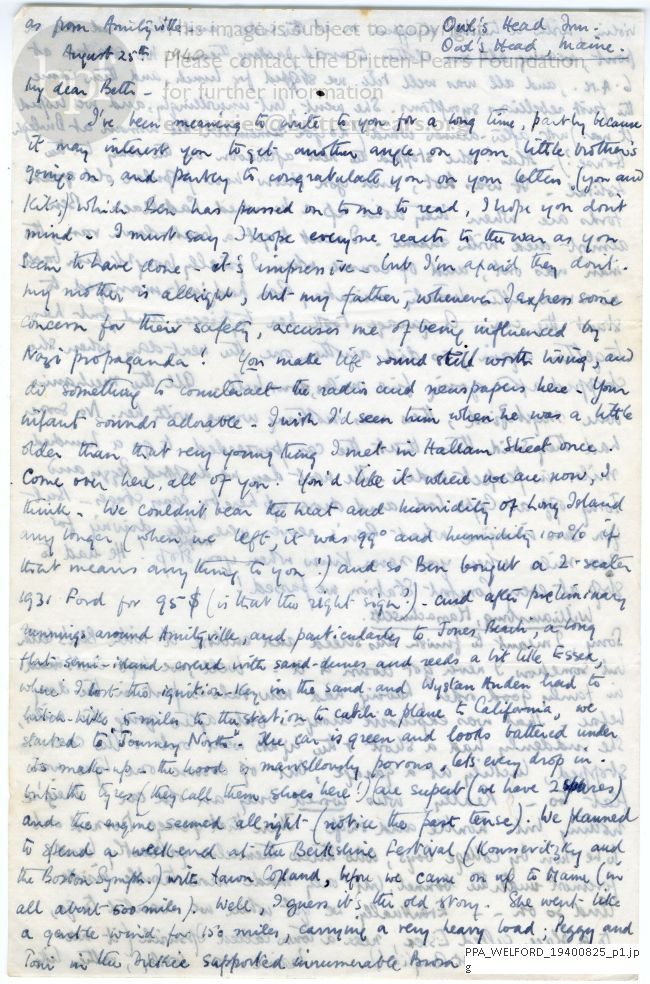 as from Amityville
Owl's Head Inn.
Owl's Head, Maine.
August 25th 1940
This image is subject to copyright
Please contact the Britten-Pears Foundation
for further information
enquiries@brittenpears.org
My dear Beth -
I've been meaning to write to you for a long time, partly because
it may interest you to get another angle on your little brother's
goings on, and partly to congratulate you on your letters (you and
Kit's) which Ben has passed on to me to read, I hope you don't
mind. I must say I hope everyone reacts to the war as you
seem to have done - it's impressive - but I'm afraid they don't.
My mother is allright, but my father, whenever I express some
concern for their safety, accuses me of being influenced by
Nazi propaganda! You make life sound still worth living, and
do something to counteract the radio and newspapers here - Your
infant sounds adorable - I wish I'd seen him when he was a little
older than that very young thing I met in Hallam Street once.
Come over here, all of you! You'd like it where we are now, I
think - We couldn't bear the heat and humidity of Long Island
any longer (when we left, it was 99° and humidity 100% if
that means anything to you!) and so Ben bought a 2-seater
1931 Ford for 95$ (is that the right sign?) - and after preliminary
runnings around Amityville, and particularly to Jones Beach, a long
flat semi-island covered with sand-dunes and reeds a bit like Essex,
where I lost the ignition-key in the sand and Wystan Auden had to
hitch-hike 5 miles to the station to catch a plane to California, we
started to "Journey North". The car is green and looks battered under
its make-up - the hood is marvellously porous, lets every drop in.
but the tyres (they call them shoes here!) are superb (we have 2 spares)
and the engine seemed allright (notice the past tense). We planned
to spend a week-end at the Berkshire Festival (Koussevitzky and
the Boston Symph.) with Aaron Copland, before we came on up to Maine (in
all about 500 miles). Well, I guess it's the old story. She went like
a gentle wind for 150 miles, carrying a very heavy load; Peggy and
Toni in the Dickie supported innumerable
PPA_WELFORD_19400825_p1.jp
g